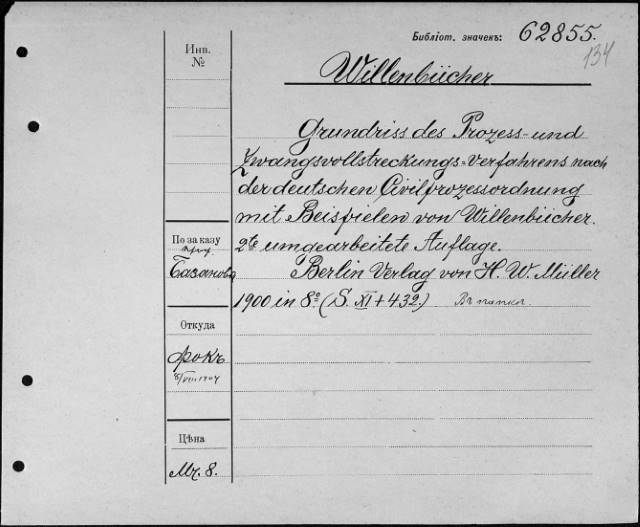 Библіот. значекъ: 62855.
134
Инв.
№
Willenbücher
Grundriss des Prozess- und
Zwangsvollstreckungs-verfahrens nach
der deutschen Civilprozessordnung
mit Beispielen von Willenbücher.
По заказу
проф.
Базанова
2te umgearbeitete Auflage.
Berlin Verlag von H. W. Müller
1900 in 8º (S. XI + 432.) Въ папкѣ.
Откуда
Фокъ
/VIII 1904
Цѣна
Mr. 8.